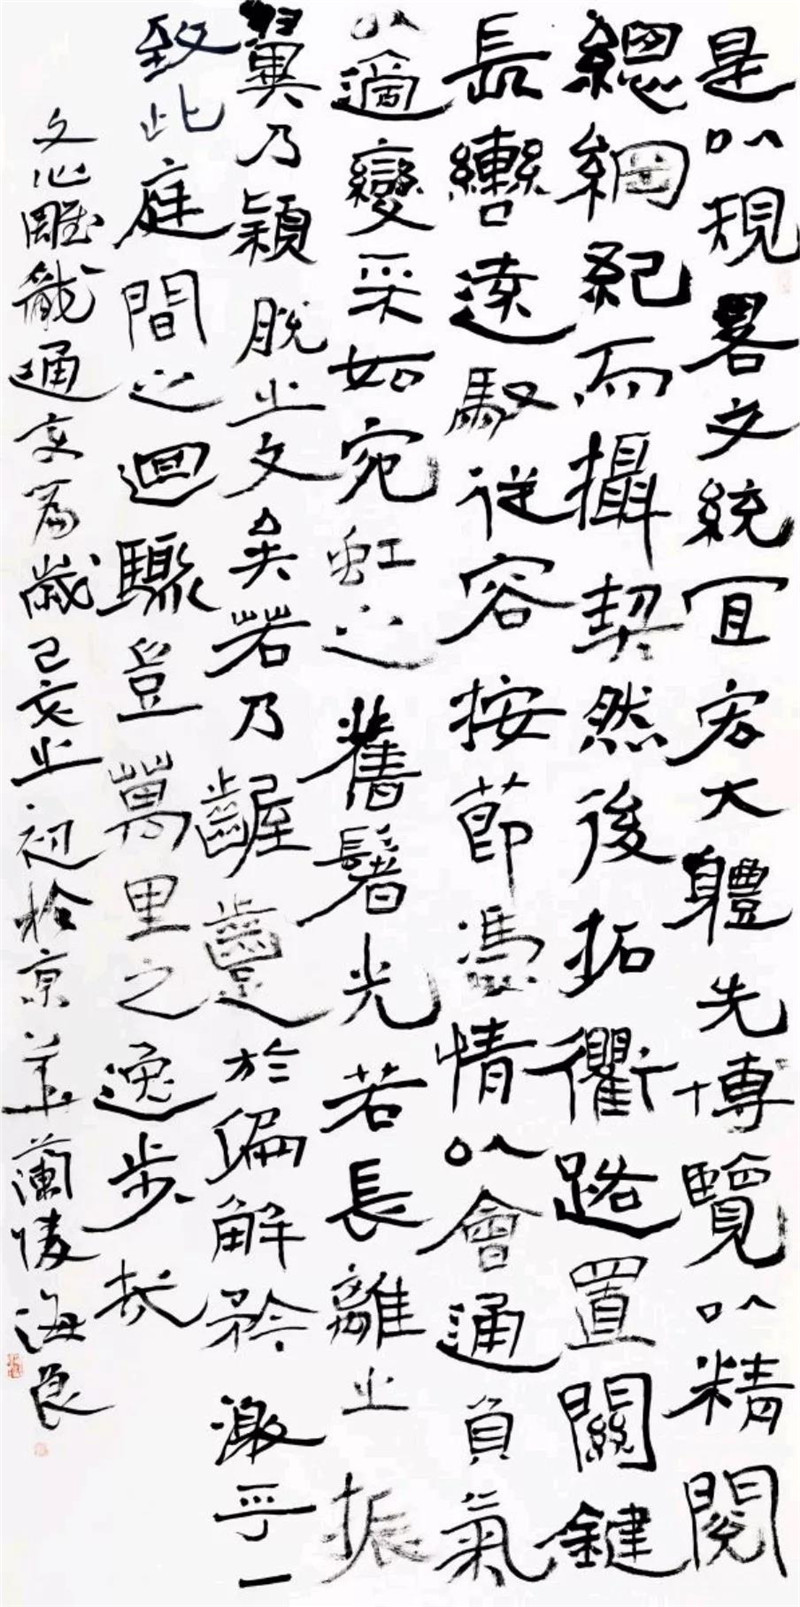 是以規畧文統宜宏大體先博覽以精閱
總綱紀而攝契然後拓衢路置關鍵
長轡遠馭從容按節憑情以會通負氣
以適變采如宛虹之奮鬐光若長離之振
翼乃穎脫之文矣若乃齷齪於偏解矜激乎一
致此庭間之迴驟豈萬里之逸步哉
文心雕龍通變篇歲己亥之初於京華蘭陵海良